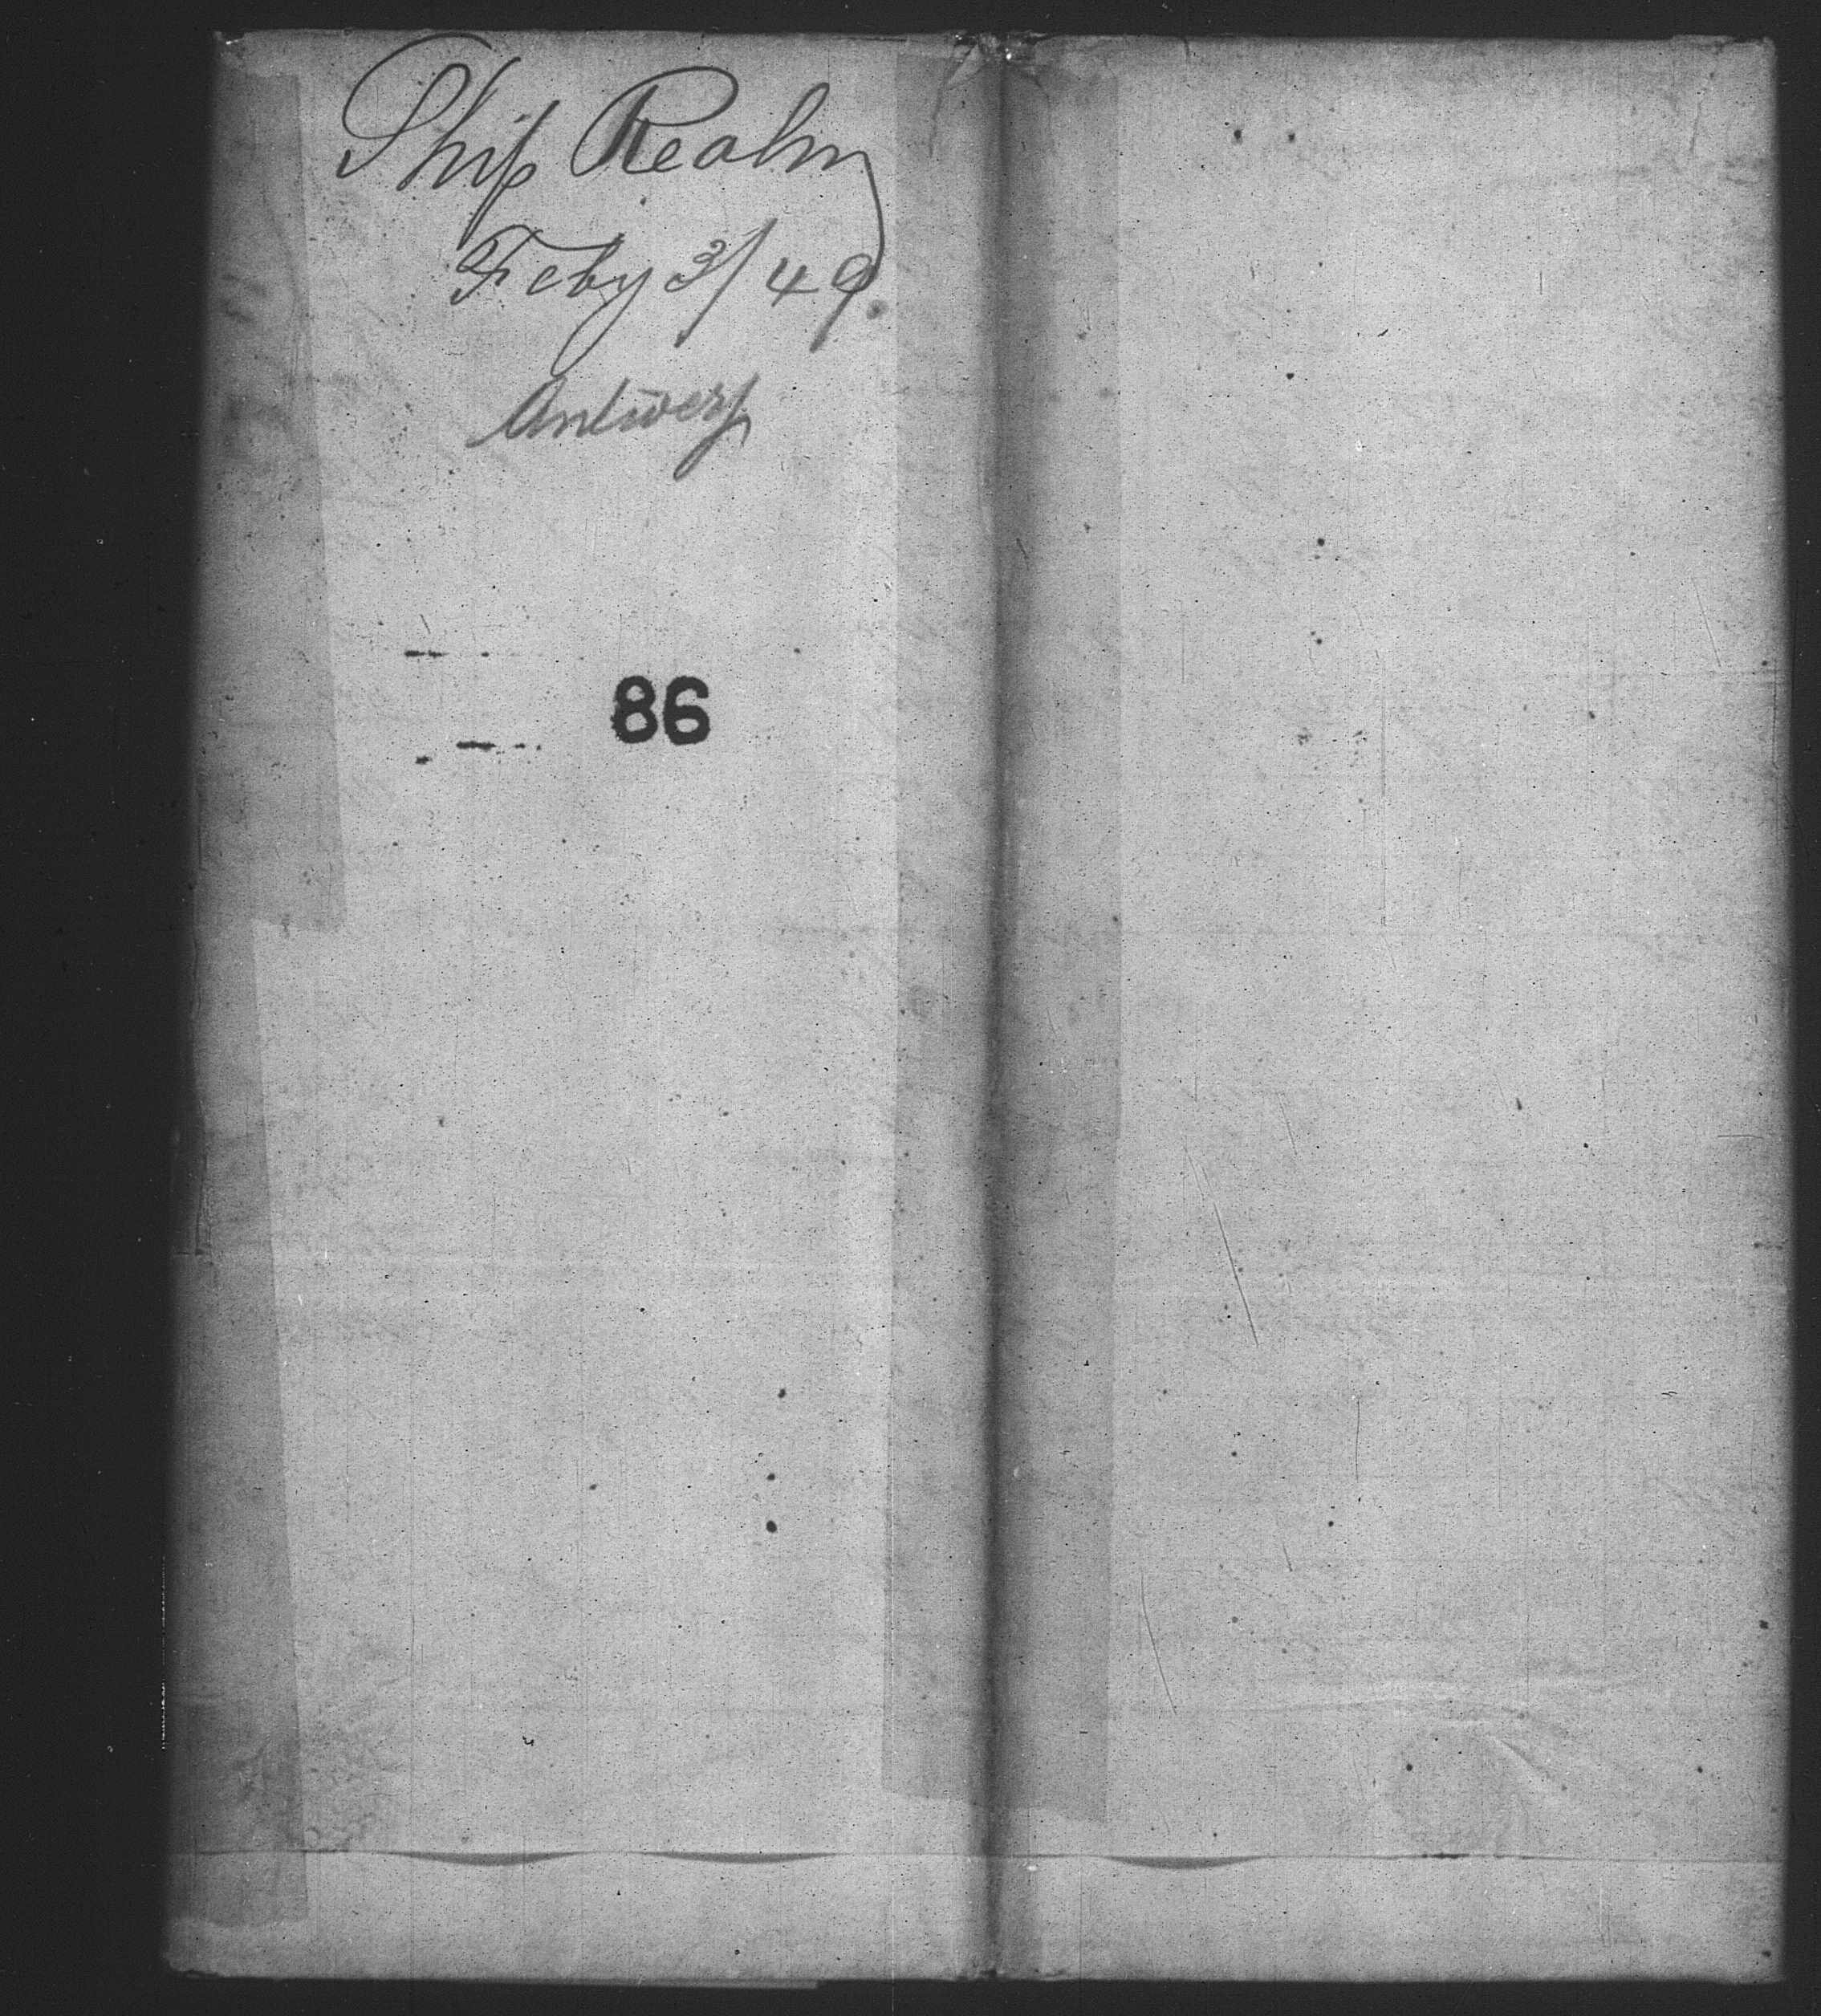 Ship Realm
Feby 3/49.
Antwerp
86